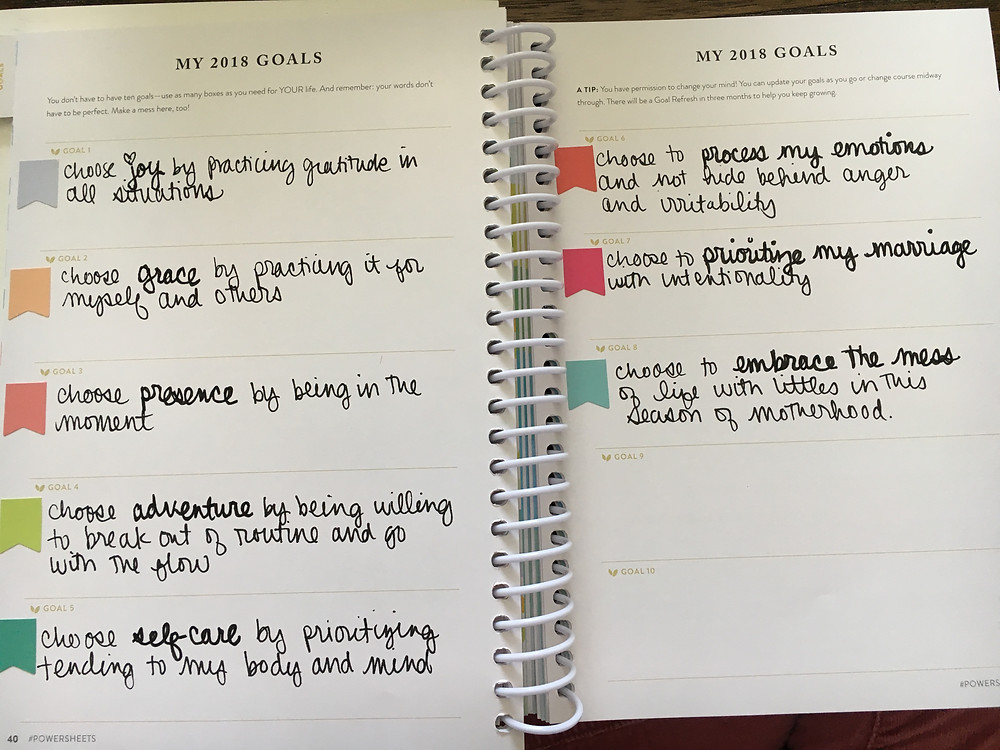 MY 2018 GOALS
You don't have to have ten goals—use as many boxes as you need for YOUR life. And remember: your words don't
have to be perfect. Make a mess here, too!
GOAL 1
choose joy by practicing gratitude in
all situations
GOAL 2
choose grace by practicing it for
myself and others
GOAL 3
choose presence by being in the
moment
GOAL 4
choose adventure by being willing
to break out of routine and go
with the flow
GOAL 5
choose self-care by prioritizing
tending to my body and mind
40 #POWERSHEETS
MY 2018 GOALS
A TIP: You have permission to change your mind! You can update your goals as you go or change course midway
through. There will be a Goal Refresh in three months to help you keep growing.
GOAL 6
choose to process my emotions
and not hide behind anger
and irritability
GOAL 7
choose to prioritize my marriage
with intentionality
GOAL 8
choose to embrace the mess
of life with littles in this
season of motherhood.
GOAL 9
GOAL 10
#POWERS